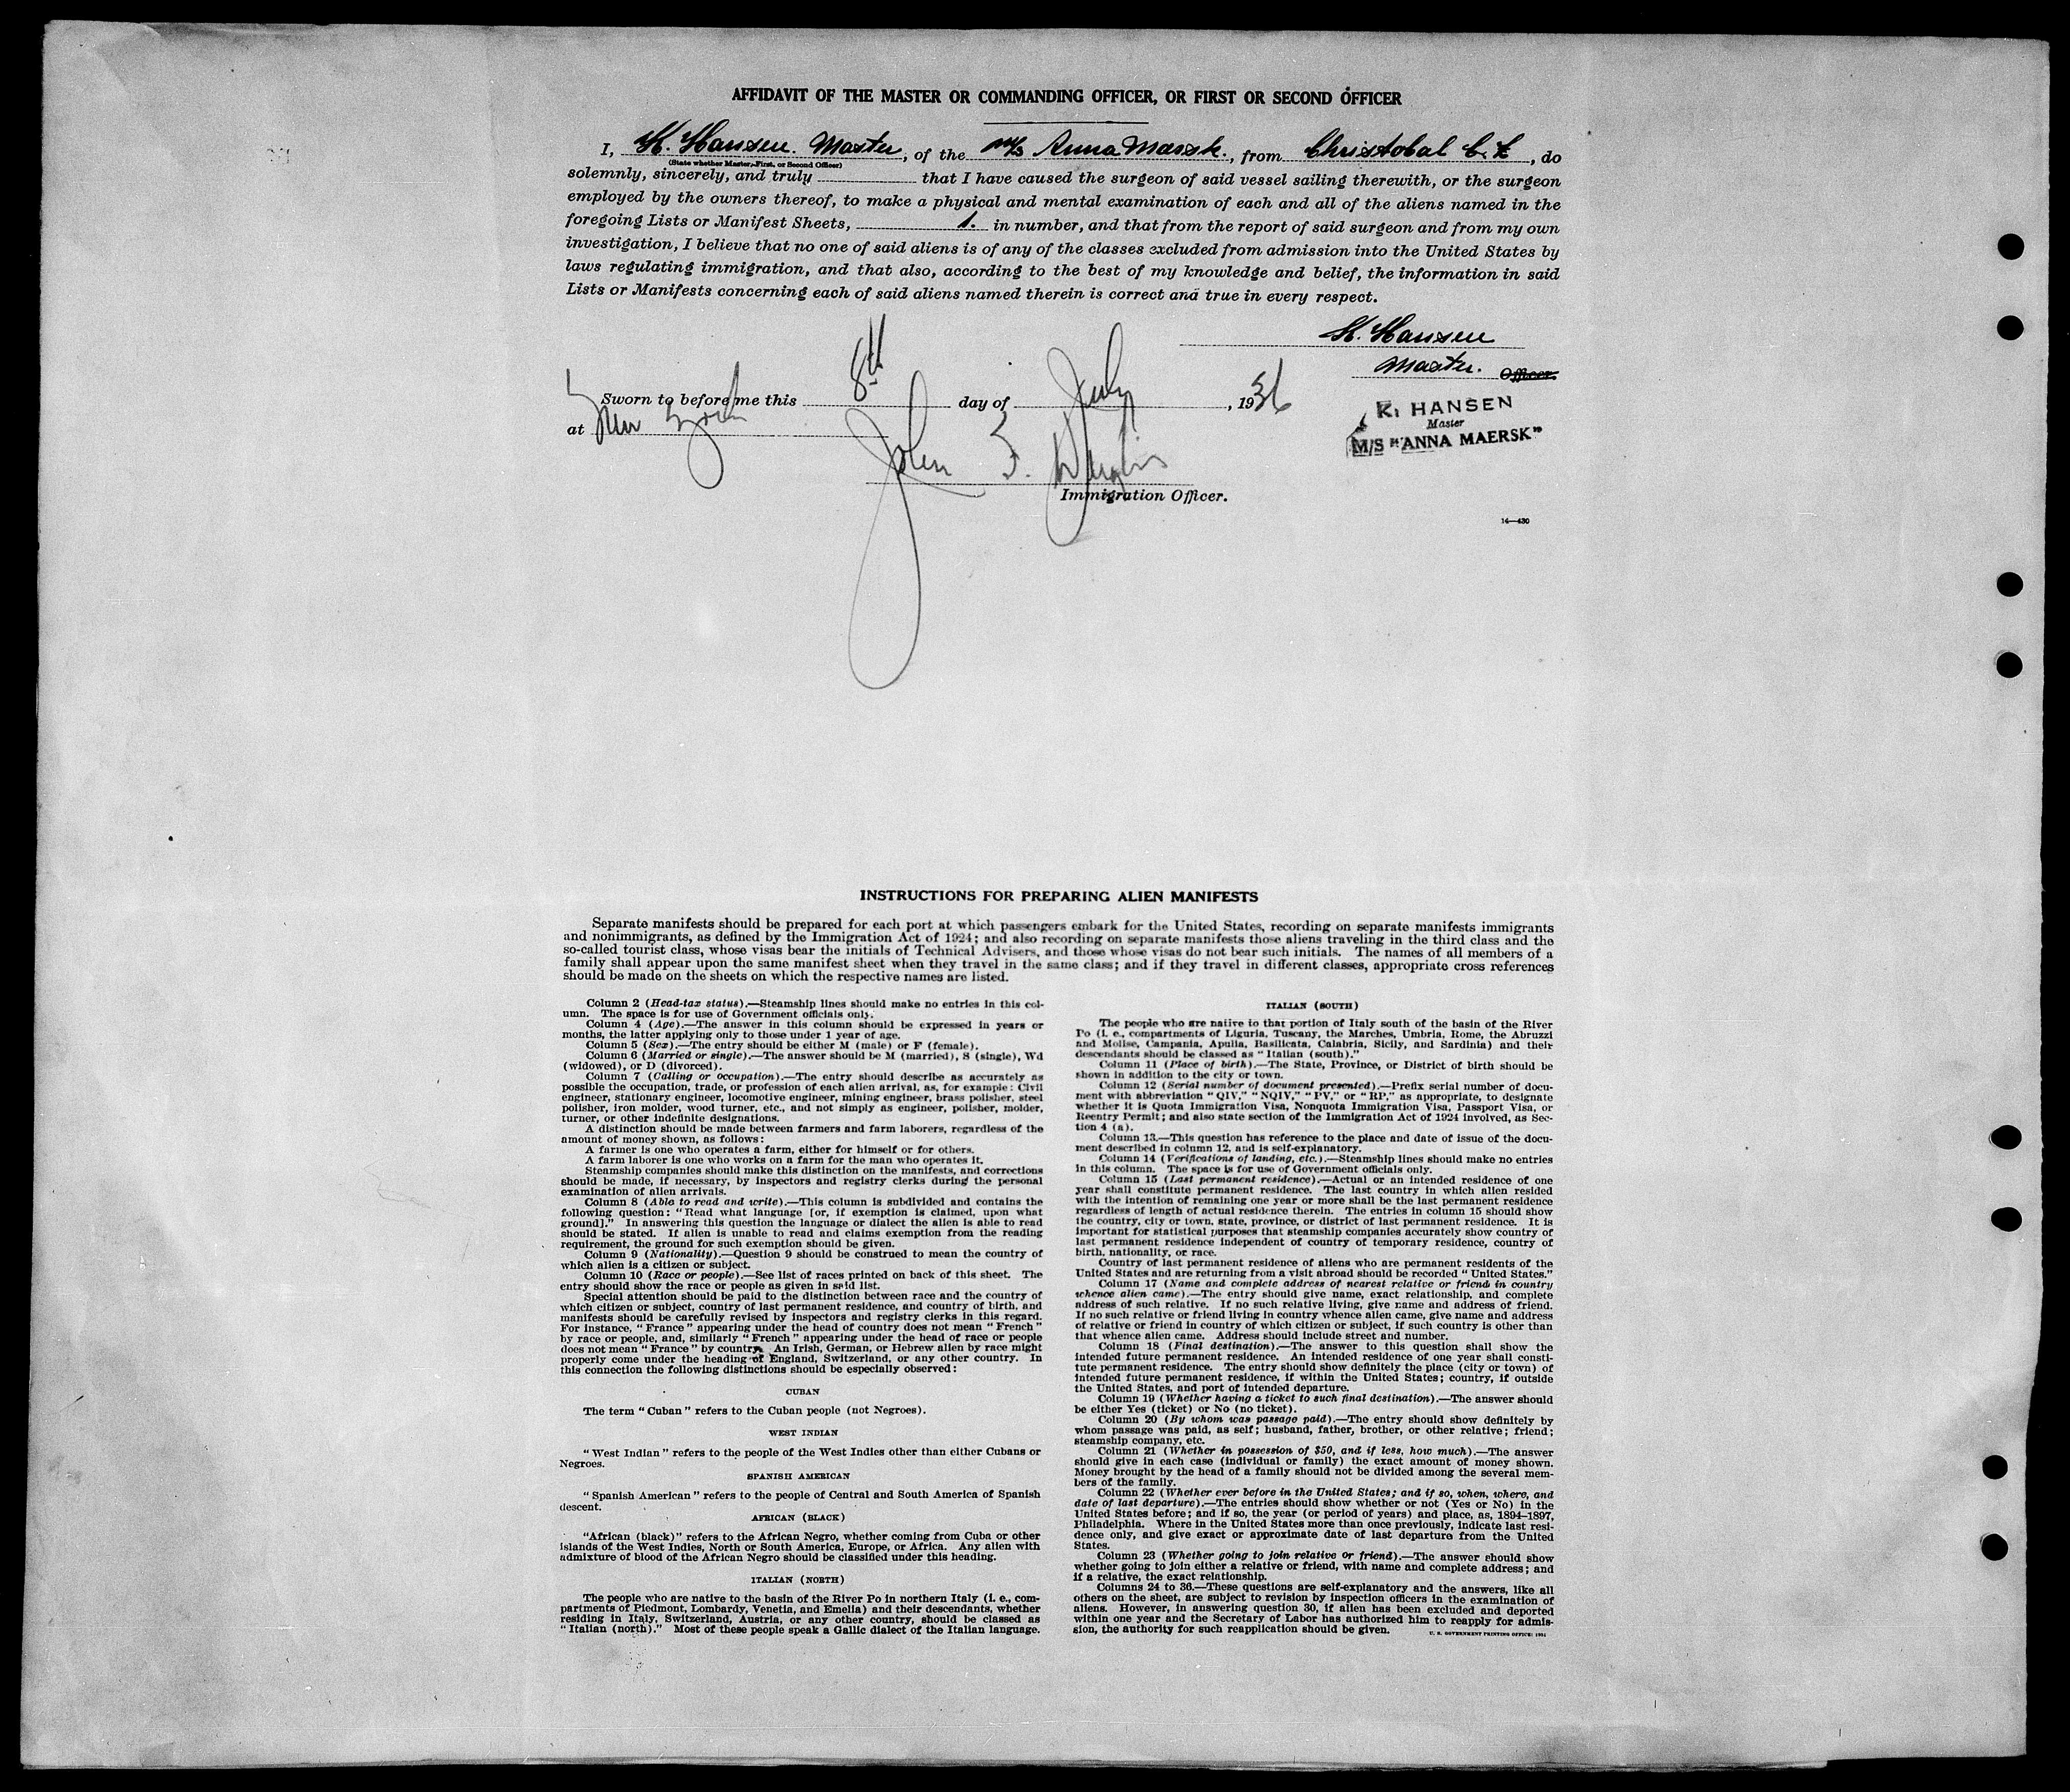 AFFIDAVIT OF THE MASTER OR COMMANDING OFFICER, OR FIRST OR SECOND OFFICER
I, K. Hansen. Master, of the M/S Anna Maersk., from Christobal C.Z, do
(State whether Master, First, or Second Officer)
solemnly, sincerely, and truly that I have caused the surgeon of said vessel sailing therewith, or the surgeon
employed by the owners thereof, to make a physical and mental examination of each and all of the aliens named in the
foregoing Lists or Manifest Sheets, 1. in number, and that from the report of said surgeon and from my own
investigation, I believe that no one of said aliens is of any of the classes excluded from admission into the United States by
laws regulating immigration, and that also, according to the best of my knowledge and belief, the information in said
Lists or Manifests concerning each of said aliens named therein is correct and true in every respect.
K. Hansen
Master. Officer.
Sworn to before me this 8th day of July, 1936
at New York
K. HANSEN
Master
M/S "ANNA MAERSK"
John F.
Immigration Officer.
14—430
INSTRUCTIONS FOR PREPARING ALIEN MANIFESTS
Separate manifests should be prepared for each port at which passengers embark for the United States, recording on separate manifests immigrants
and nonimmigrants, as defined by the Immigration Act of 1924; and also recording on separate manifests those aliens traveling in the third class and the
so-called tourist class, whose visas bear the initials of Technical Advisers, and those whose visas do not bear such initials. The names of all members of a
family shall appear upon the same manifest sheet when they travel in the same class; and if they travel in different classes, appropriate cross references
should be made on the sheets on which the respective names are listed.
Column 2 (Head-tax status).—Steamship lines should make no entries in this col-
umn. The space is for use of Government officials only.
Column 4 (Age).—The answer in this column should be expressed in years or
months, the latter applying only to those under 1 year of age.
Column 5 (Sex).—The entry should be either M (male) or F (female).
Column 6 (Married or single).—The answer should be M (married), S (single), Wd
(widowed), or D (divorced).
Column 7 (Calling or occupation).—The entry should describe as accurately as
possible the occupation, trade, or profession of each alien arrival, as, for example: Civil
engineer, stationary engineer, locomotive engineer, mining engineer, brass polisher, steel
polisher, iron molder, wood turner, etc., and not simply as engineer, polisher, molder,
turner, or other indefinite designations.
A distinction should be made between farmers and farm laborers, regardless of the
amount of money shown, as follows:
A farmer is one who operates a farm, either for himself or for others.
A farm laborer is one who works on a farm for the man who operates it.
Steamship companies should make this distinction on the manifests, and corrections
should be made, if necessary, by inspectors and registry clerks during the personal
examination of alien arrivals.
Column 8 (Able to read and write).—This column is subdivided and contains the
following question: "Read what language [or, if exemption is claimed, upon what
ground]." In answering this question the language or dialect the alien is able to read
should be stated. If alien is unable to read and claims exemption from the reading
requirement, the ground for such exemption should be given.
Column 9 (Nationality).—Question 9 should be construed to mean the country of
which alien is a citizen or subject.
Column 10 (Race or people).—See list of races printed on back of this sheet. The
entry should show the race or people as given in said list.
Special attention should be paid to the distinction between race and the country of
which citizen or subject, country of last permanent residence, and country of birth, and
manifests should be carefully revised by inspectors and registry clerks in this regard.
For instance, "France" appearing under the head of country does not mean "French"
by race or people, and, similarly "French" appearing under the head of race or people
does not mean "France" by country. An Irish, German, or Hebrew alien by race might
properly come under the heading of England, Switzerland, or any other country. In
this connection the following distinctions should be especially observed:
CUBAN
The term "Cuban" refers to the Cuban people (not Negroes).
WEST INDIAN
"West Indian" refers to the people of the West Indies other than either Cubans or
Negroes.
SPANISH AMERICAN
"Spanish American" refers to the people of Central and South America of Spanish
descent.
AFRICAN (BLACK)
"African (black)" refers to the African Negro, whether coming from Cuba or other
islands of the West Indies, North or South America, Europe, or Africa. Any alien with
admixture of blood of the African Negro should be classified under this heading.
ITALIAN (NORTH)
The people who are native to the basin of the River Po in northern Italy (i. e., com-
partments of Piedmont, Lombardy, Venetia, and Emelia) and their descendants, whether
residing in Italy, Switzerland, Austria, or any other country, should be classed as
"Italian (north)." Most of these people speak a Gallic dialect of the Italian language.
ITALIAN (SOUTH)
The people who are native to that portion of Italy south of the basin of the River
Po (i. e., compartments of Liguria, Tuscany, the Marches, Umbria, Rome, the Abruzzi
and Molise, Campania, Apulia, Basilicata, Calabria, Sicily, and Sardinia) and their
descendants should be classed as "Italian (south)."
Column 11 (Place of birth).—The State, Province, or District of birth should be
shown in addition to the city or town.
Column 12 (Serial number of document presented).—Prefix serial number of docu-
ment with abbreviation "QIV," "NQIV," "PV," or "RP," as appropriate, to designate
whether it is Quota Immigration Visa, Nonquota Immigration Visa, Passport Visa, or
Reentry Permit; and also state section of the Immigration Act of 1924 involved, as Sec-
tion 4 (a).
Column 13.—This question has reference to the place and date of issue of the docu-
ment described in column 12, and is self-explanatory.
Column 14 (Verifications of landing, etc.).—Steamship lines should make no entries
in this column. The space is for use of Government officials only.
Column 15 (Last permanent residence).—Actual or an intended residence of one
year shall constitute permanent residence. The last country in which alien resided
with the intention of remaining one year or more shall be the last permanent residence
regardless of length of actual residence therein. The entries in column 15 should show
the country, city or town, state, province, or district of last permanent residence. It is
important for statistical purposes that steamship companies accurately show country of
last permanent residence independent of country of temporary residence, country of
birth, nationality, or race.
Country of last permanent residence of aliens who are permanent residents of the
United States and are returning from a visit abroad should be recorded "United States."
Column 17 (Name and complete address of nearest relative or friend in country
whence alien came).—The entry should give name, exact relationship, and complete
address of such relative. If no such relative living, give name and address of friend.
If no such relative or friend living in country whence alien came, give name and address
of relative or friend in country of which citizen or subject, if such country is other than
that whence alien came. Address should include street and number.
Column 18 (Final destination).—The answer to this question shall show the
intended future permanent residence. An intended residence of one year shall consti-
tute permanent residence. The entry should show definitely the place (city or town) of
intended future permanent residence, if within the United States; country, if outside
the United States, and port of intended departure.
Column 19 (Whether having a ticket to such final destination).—The answer should
be either Yes (ticket) or No (no ticket).
Column 20 (By whom was passage paid).—The entry should show definitely by
whom passage was paid, as self; husband, father, brother, or other relative; friend;
steamship company, etc.
Column 21 (Whether in possession of $50, and if less, how much).—The answer
should give in each case (individual or family) the exact amount of money shown.
Money brought by the head of a family should not be divided among the several mem-
bers of the family.
Column 22 (Whether ever before in the United States; and if so, when, where, and
date of last departure).—The entries should show whether or not (Yes or No) in the
United States before; and if so, the year (or period of years) and place, as, 1894–1897,
Philadelphia. Where in the United States more than once previously, indicate last resi-
dence only, and give exact or approximate date of last departure from the United
States.
Column 23 (Whether going to join relative or friend).—The answer should show
whether going to join either a relative or friend, with name and complete address; and
if a relative, the exact relationship.
Columns 24 to 36.—These questions are self-explanatory and the answers, like all
others on the sheet, are subject to revision by inspection officers in the examination of
aliens. However, in answering question 30, if alien has been excluded and deported
within one year and the Secretary of Labor has authorized him to reapply for admis-
sion, the authority for such reapplication should be given.
U. S. GOVERNMENT PRINTING OFFICE: 1934